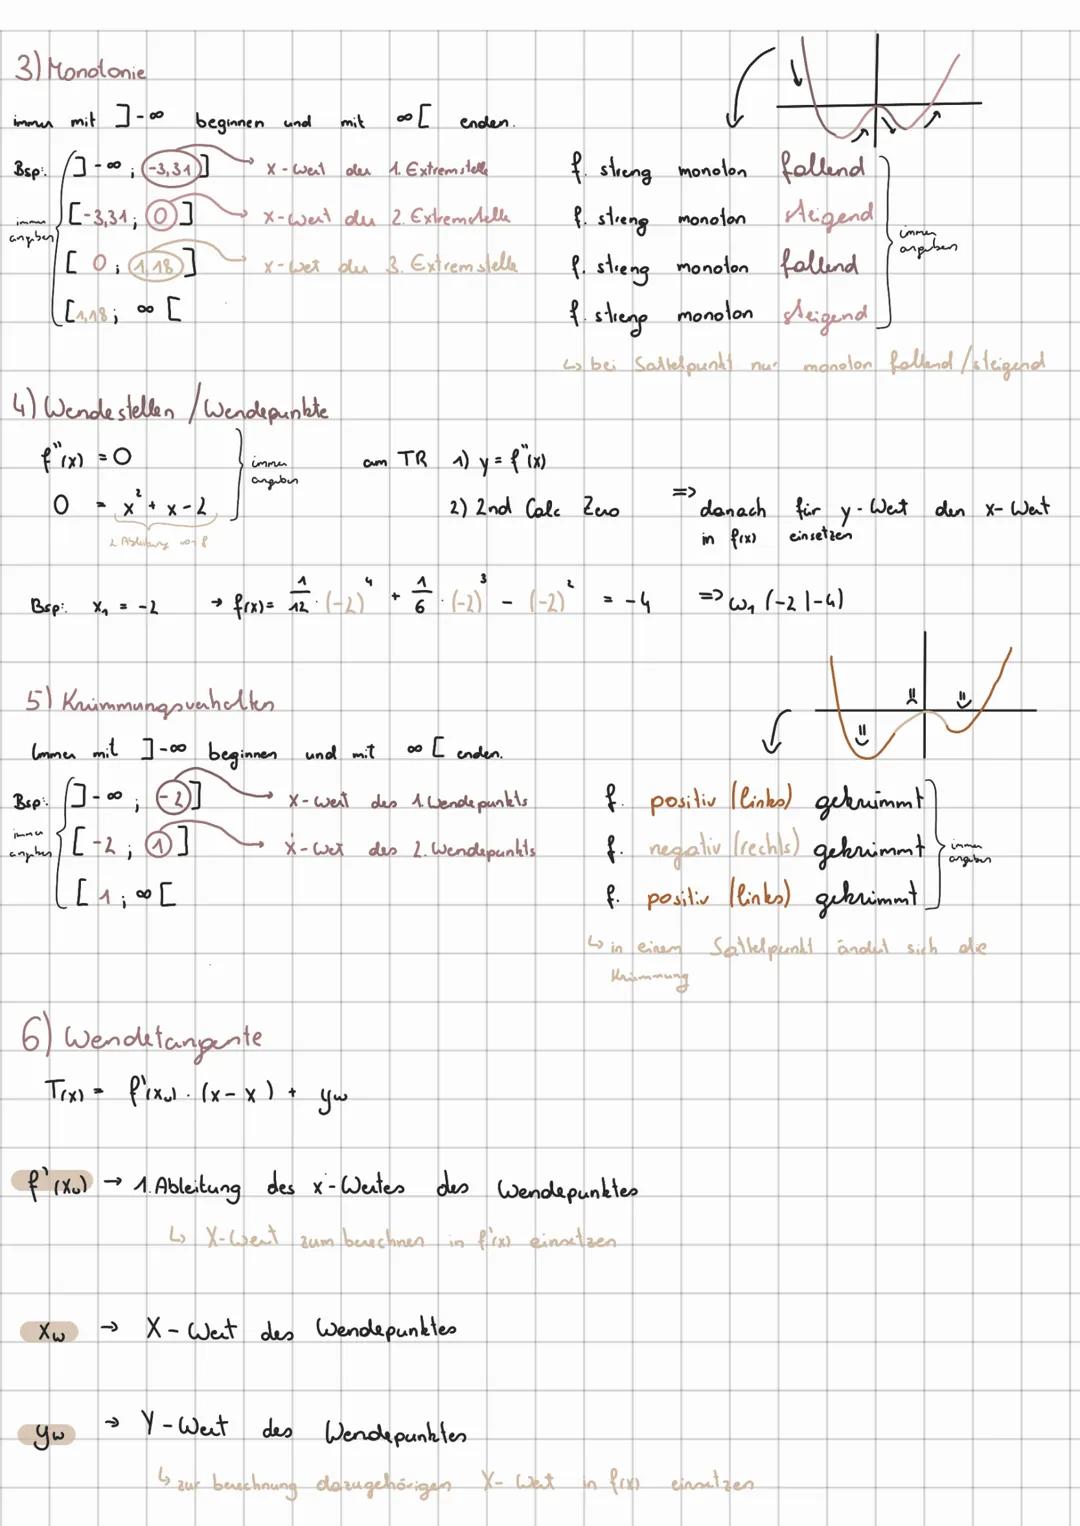 3) Monotonie
immer mit ]-∞ beginnen und mit ∞[ enden.
Bsp: ]-∞ ; -3,31] x-Wert der 1. Extremstelle f. streng monoton fallend
immer angeben [-3,31; 0] x-Wert der 2. Extremstelle f. streng monoton steigend immer angeben
[0 ; 1,18] x-Wert der 3. Extremstelle f. streng monoton fallend
[1,18; ∞[ f. streng monoton steigend
↳ bei Sattelpunkt nur monoton fallend/steigend
4) Wendestellen / Wendepunkte
f''(x) = 0 immer angeben am TR 1) y = f''(x)
0 = x² + x - 2 2) 2nd Calc Zero => danach für y-Wert den x-Wert
2. Ableitung von f in f(x) einsetzen
Bsp: x₁ = -2 → f(x) = 1/12 · (-2)⁴ + 1/6 · (-2)³ - (-2)² = -4 => W₁ (-2 | -4)
5) Krümmungsverhalten
Immer mit ]-∞ beginnen und mit ∞[ enden.
Bsp: ]-∞ ; -2] x-Wert des 1. Wendepunkts f. positiv (links) gekrümmt
immer angeben [-2 ; 1] x-Wert des 2. Wendepunkts f. negativ (rechts) gekrümmt immer angeben
[1 ; ∞[ f. positiv (links) gekrimmt
↳ in einem Sattelpunkt ändert sich die
Krümmung
6) Wendetangente
T(x) = f'(xw) · (x - x) + yw
f'(xw) → 1. Ableitung des x-Wertes des Wendepunktes
↳ X-Wert zum berechnen in f'(x) einsetzen
xw → X-Wert des Wendepunktes
yw → Y-Wert des Wendepunktes
↳ zur berechnung dazugehörigen X-Wert in f(x) einsetzen